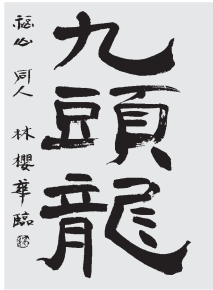 九頭龍
福山 同人 林櫻華臨